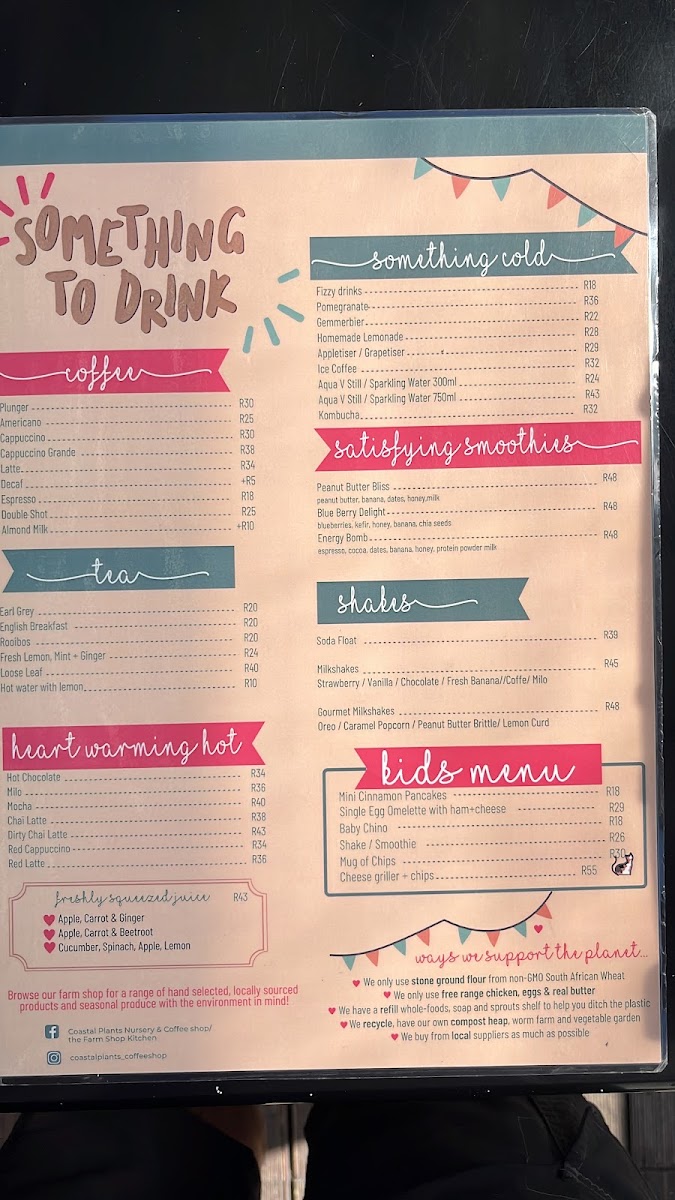 SOMETHING
TO DRINK
coffee
Plunger R30
Americano R25
Cappuccino R30
Cappuccino Grande R38
Latte R34
Decaf +R5
Espresso R18
Double Shot R25
Almond Milk +R10
tea
Earl Grey R20
English Breakfast R20
Rooibos R20
Fresh Lemon, Mint + Ginger R24
Loose Leaf R40
Hot water with lemon R10
heart warming hot
Hot Chocolate R34
Milo R36
Mocha R40
Chai Latte R38
Dirty Chai Latte R43
Red Cappuccino R34
Red Latte R36
freshly squeezed juice R43
Apple, Carrot & Ginger
Apple, Carrot & Beetroot
Cucumber, Spinach, Apple, Lemon
Browse our farm shop for a range of hand selected, locally sourced
products and seasonal produce with the environment in mind!
Coastal Plants Nursery & Coffee shop/
the Farm Shop Kitchen
coastalplants_coffeeshop
something cold
Fizzy drinks R18
Pomegranate R36
Gemmerbier R22
Homemade Lemonade R28
Appletiser / Grapetiser R29
Ice Coffee R32
Aqua V Still / Sparkling Water 300ml R24
Aqua V Still / Sparkling Water 750ml R43
Kombucha R32
satisfying smoothies
Peanut Butter Bliss R48
peanut butter, banana, dates, honey,milk
Blue Berry Delight R48
blueberries, kefir, honey, banana, chia seeds
Energy Bomb R48
espresso, cocoa, dates, banana, honey, protein powder milk
shakes
Soda Float R39
Milkshakes R45
Strawberry / Vanilla / Chocolate / Fresh Banana//Coffe/ Milo
Gourmet Milkshakes R48
Oreo / Caramel Popcorn / Peanut Butter Brittle/ Lemon Curd
kids menu
Mini Cinnamon Pancakes R18
Single Egg Omelette with ham+cheese R29
Baby Chino R18
Shake / Smoothie R26
Mug of Chips R30
Cheese griller + chips R55
ways we support the planet...
We only use stone ground flour from non-GMO South African Wheat
We only use free range chicken, eggs & real butter
We have a refill whole-foods, soap and sprouts shelf to help you ditch the plastic
We recycle, have our own compost heap, worm farm and vegetable garden
We buy from local suppliers as much as possible